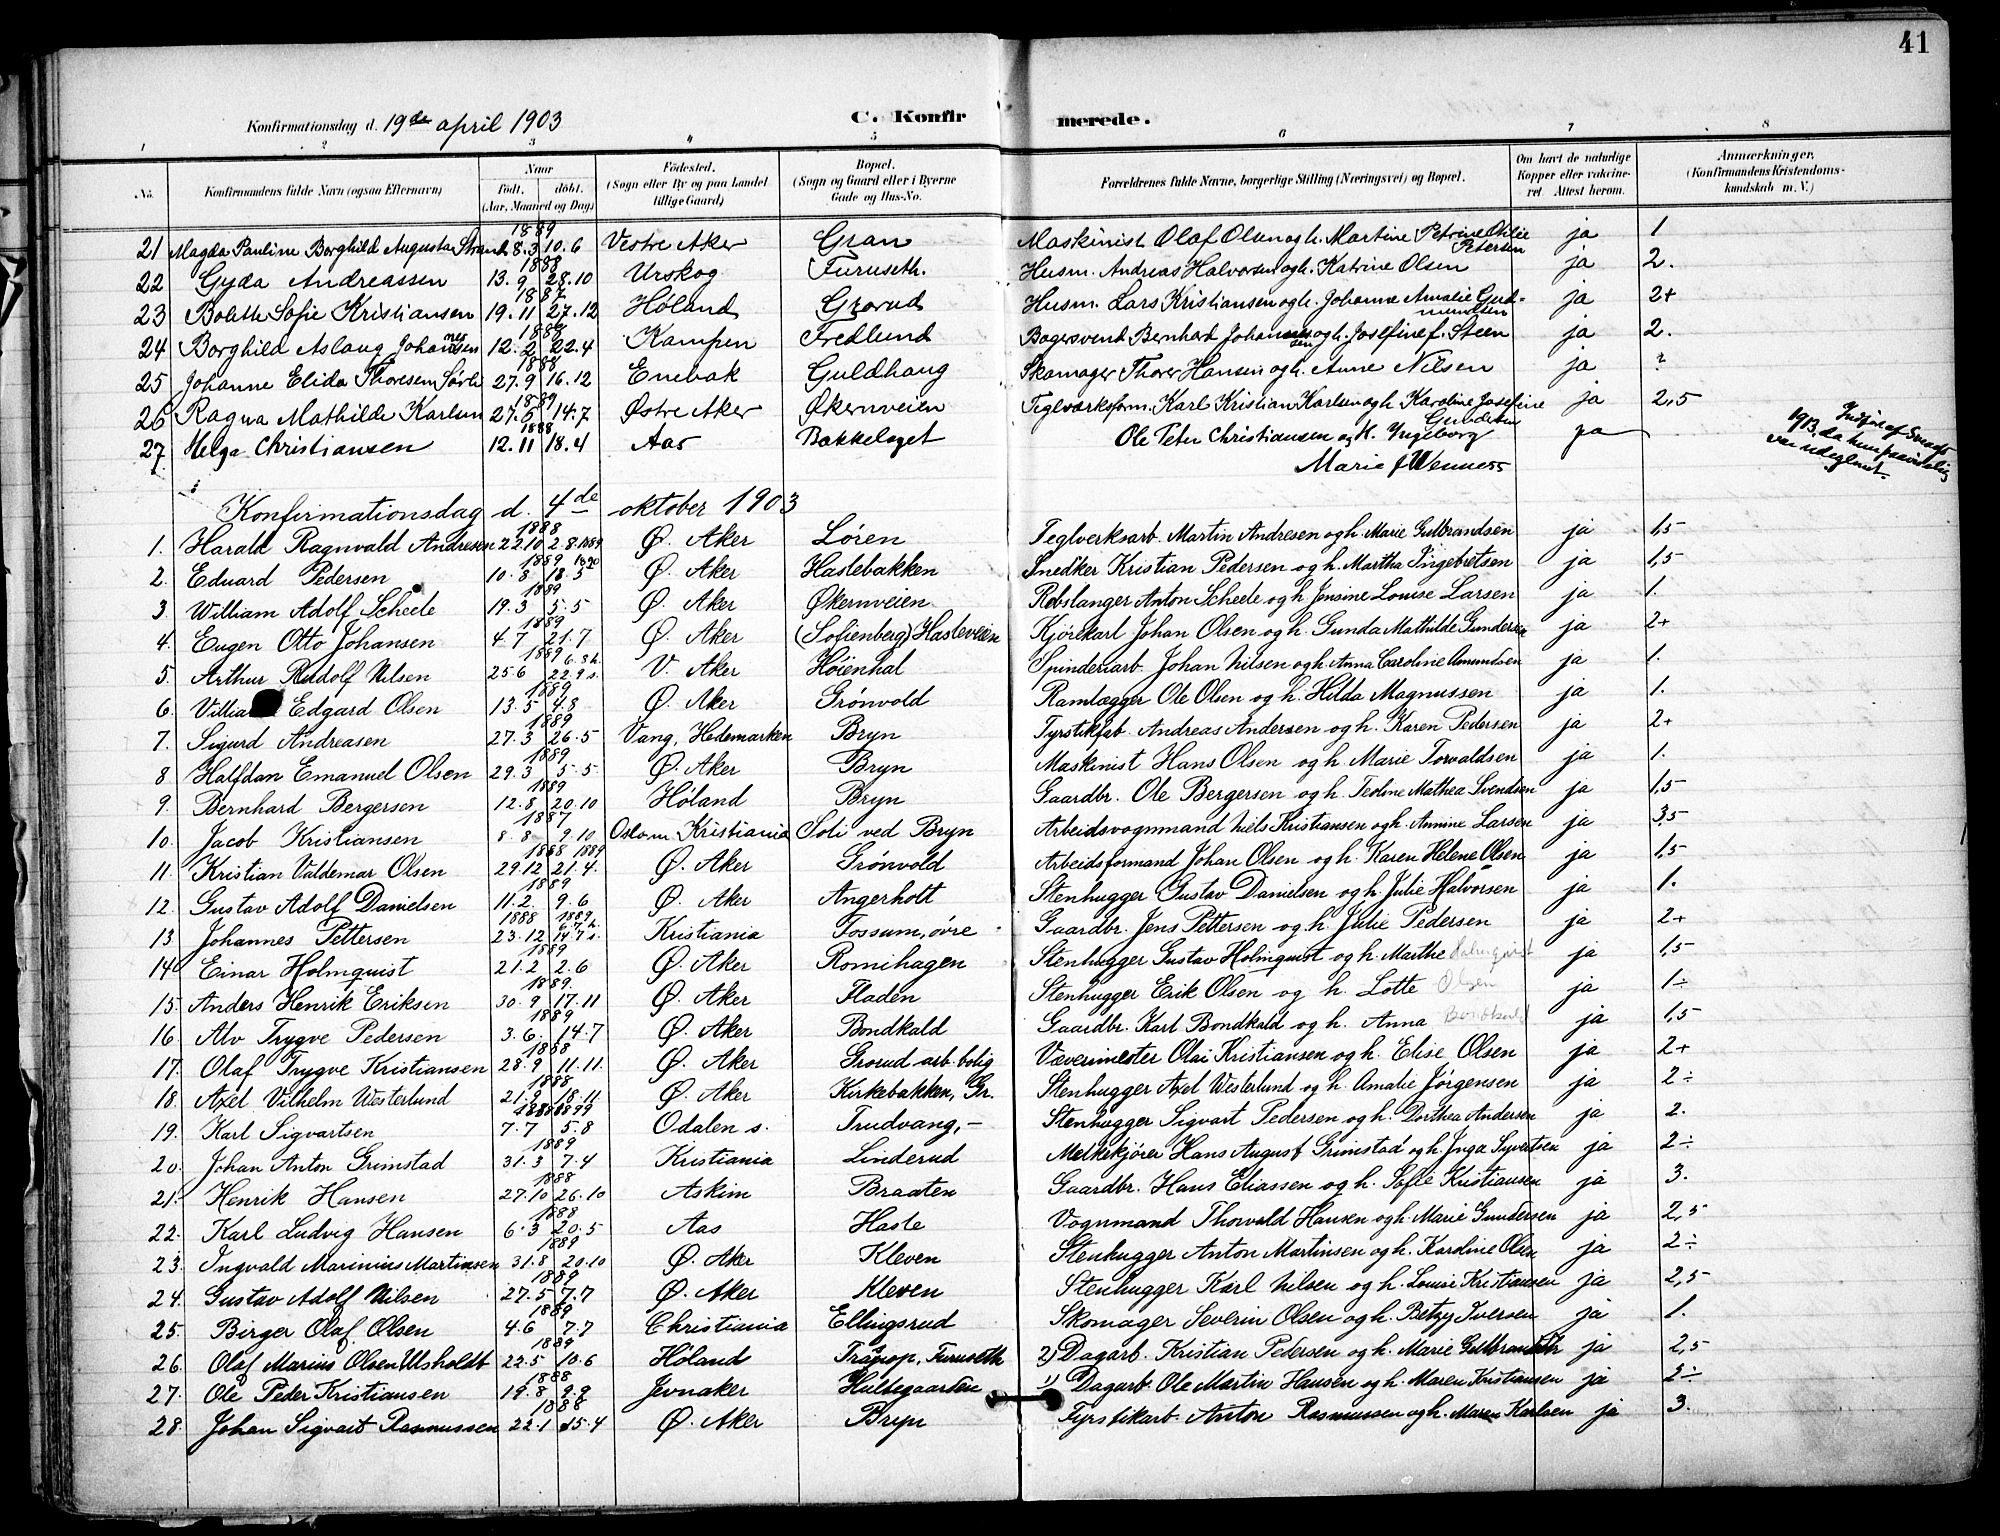 41
Konfirmationsdag d. 19de april 1903
C. Konfirmerede.
1 2 3 4 5 6 7 8
No. Konfirmandens fulde Navn (ogsaa Efternavn) Naar født, døbt. (Aar, Maaned og Dag) Fødested. (Sogn eller By og paa Landet tillige Gaard.) Bopæl. (Sogn og Gaard eller i Byerne Gade og Hus-No. Forældrenes fulde Navne, borgerlige Stilling (Næringsvei) og Bopæl. Om havt de naturlige Kopper eller vaccineret Attest herom. Anmærkninger. (Konfirmandens Kristendomskundskab m. V.)
21 Magda Pauline Borghild Augusta Strand 1889 8.3 10.6 Vestre Aker Gran Maskinist Olaf Olsen og h. Martine Petrine Otilie Petersen ja 1
22 Gyda Andreassen 1888 13.9 28.10 Urskog Furuseth. Husm. Andreas Halvorsen og h. Katrine Olsen ja 2.
23 Bolette Sofie Kristiansen 1887 19.11 27.12 Høland Grorud Husm. Lars Kristiansen og h. Johanne Amalie Gudmundsen ja 2+
24 Borghild Aslaug Johannessen 12.2 22.4 Kampen Fredlund Bagersvend Bernhard Johannessen og h. Josefine f. Steen ja 2.
25 Johanne Elida Thoresen Sørli 1888 27.9 16.12 Enebak Guldhaug Skomager Thorer Hansen og h. Anne Nilsen ja
26 Ragna Mathilde Karlsen 1889 27.5 14.7 Østre Aker Økernveien Teglværksform. Karl Kristian Karlsen og h. Karoline Josefine ja 2,5
27. Helga Christiansen 1888 12.11 18.4 Aas Bakkelaget Ole Peter Christiansen og h. Ingeborg Marie f. Wenner ja Indført af 1913, da hun var udeglemt.
Konfirmationsdag d. 4de oktober 1903
1. Harald Ragnvald Andresen 1888 22.10 2.8.1889 Ø. Aker Løren Teglverksarb. Martin Andresen og h. Marie Gulbrandsen ja 1,5
2. Edvard Pedersen 1889 1890 10.8 18.5 Ø. Aker Haslebakken Snedker Kristian Pedersen og h. Martha Ingebretsen ja 1,5
3. William Adolf Scheele 1889 19.3 5.5 Ø. Aker Økernveien Rebslanger Anton Scheele og h. Jensine Louise Larsen ja 1.
4. Eugen Otto Johansen 1889 4.7 21.7 Ø. Aker (Sofienberg) Hasleveien Kjørekarl Johan Olsen og h. Gunda Mathilde Gundersen ja 2+
5. Arthur Rudolf Nilsen 1889 25.6 6.9 h. 22.9 s. V. Aker Høienhal Spinderiarb. Johan Nilsen og h. Anna Caroline Amundsen ja 1.
6. Edgard Olsen 1889 13.5 4.8 Ø. Aker Grønvold Ramlægger Ole Olsen og h. Hilda Magnussen ja 1.
7. Sigurd Andreasen 1889 27.3 26.5 Vang, Hedemarken Bryn Fyrstikfab. Andreas Andersen og h. Karen Pedersen ja 2+
8 Halfdan Emanuel Olsen 1889 29.3 5.5 Ø. Aker Bryn Maskinist Hans Olsen og h. Marie Torvaldsen ja 1.
9. Bernhard Bergersen 1889 12.8 20.10 Høland Bryn Gaardbr. Ole Bergersen og h. Teoline Mathea Svendsen ja 1,5
10. Jacob Kristiansen 1887 8.8 9.10 Oslo m. Kristiania Soli ved Bryn Arbeidsvognmand Niels Kristiansen og h. Annine Larsen ja 3,5
11. Kristian Valdemar Olsen 1888 1889 29.12 21.4. Ø. Aker Grønvold Arbeidsformand Johan Olsen og h. Karen Helene Olsen ja 1,5
12. Gustav Adolf Danielsen 1889 11.2. 9.6 Ø. Aker Angerholt Stenhugger Gustav Danielsen og h. Julie Halvorsen ja 1.
13. Johannes Pettersen 1888 1889. 23.12 6.7 h. 14.7 s. Kristiania Fossum, øvre Gaardbr. Jens Pettersen og h. Julie Pedersen ja 2+
14. Einar Holmquist 1889 21.2 2.6 Ø. Aker Romihagen Stenhugger Gustav Holmquist og h. Marthe Holmquist ja 1,5
15. Anders Henrik Eriksen 1889. 30.9 17.11 Ø. Aker Fladen Stenhugger Erik Olsen og h. Lotte Olsen ja 1÷
16. Alv Trygve Pedersen 1889 3.6. 14.7 Ø. Aker Bondkald Gaardbr. Karl Bondkald og h. Anna Bondkald ja 1,5
17. Olaf Trygve Kristiansen 1888 28.9 11.11. Ø. Aker Grorud arb. bolig Vævermester Olai Kristiansen og h. Elise Olsen ja 2+
18. Axel Vilhelm Westerlund 1888 21.9 18.11 Ø. Aker Kirkebakken, Gr. Stenhugger Axel Westerlund og h. Amalie Jørgensen ja 2÷
19. Karl Sigvartsen 7.7 5.8 Odalen s. Trudvang, – Stenhugger Sigvart Pedersen og h. Dorthea Andersen ja 2.
20. Johan Anton Grimstad 1889 31.3 7.4 Kristiania Linderud Melkekjører Hans August Grimstad og h. Inga Syvertsen ja 2÷
21. Henrik Hansen 1888 27.10 26.10 Askim Braaten Gaardbr. Hans Eliassen og h. Sofie Kristiansen ja 3.
22. Karl Ludvig Hansen 1888 6.3 20.5 Aas Hasle Vognmand Thorvald Hansen og h. Marie Gundersen ja 2,5
23. Ingvald Marinius Martinsen 1889 31.8 20.10 Ø. Aker Kleven Stenhugger Anton Martinsen og h. Karoline Olsen ja 2÷
24. Gustav Adolf Nilsen 1889 27.5 7.7 Ø. Aker Kleven Stenhugger Karl Nilsen og h. Louise Kristiansen ja 2,5
25. Birger Olaf Olsen 1889 4.6 7.7 Christiania Ellingsrud Skomager Severin Olsen og h. Betzy Iversen ja 1.
26. Olaf Marius Olsen Ulsholdt 1889 22.5 10.6 Høland Furuseth 2) Dagarb. Kristian Pedersen og h. Marie ja 2,5
27. Ole Peder Kristiansen 1888 19.8 9.9 Jevnaker Hultegaarden 1) Dagarb. Ole Martin Hansen og h. Maren Kristiansen ja 2÷
28. Johan Sigvart Rasmussen 1888 22.1 15.4 Ø. Aker Bryn Fyrstikarb. Anton Rasmussen og h. Maren Karlsen ja 3.